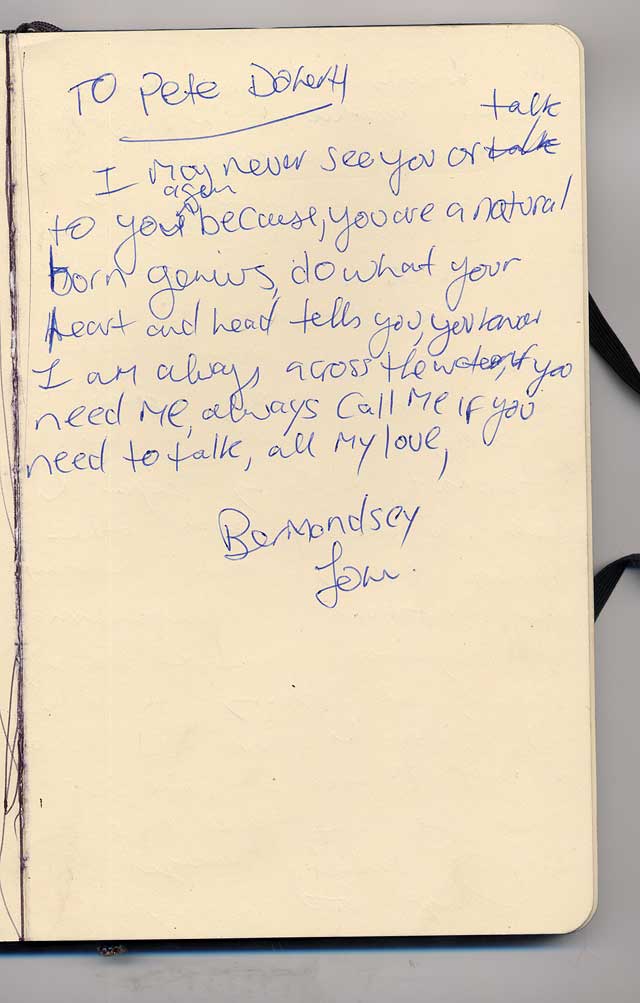 TO Pete Doherty
talk
I may never see you or talk
agen
to you because, you are a natural
born genius, do what your
heart and head tells you, you know
I am always across the water, if you
need me, always call me if you
need to talk, all my love,
Bermondsey